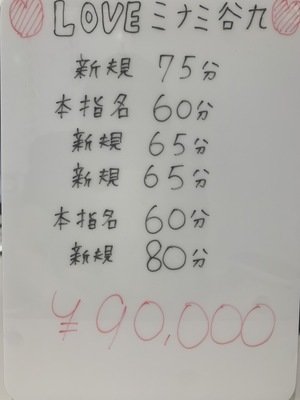 LOVEミナミ谷九
新規 75分
本指名 60分
新規 65分
新規 65分
本指名 60分
新規 80分
¥90,000